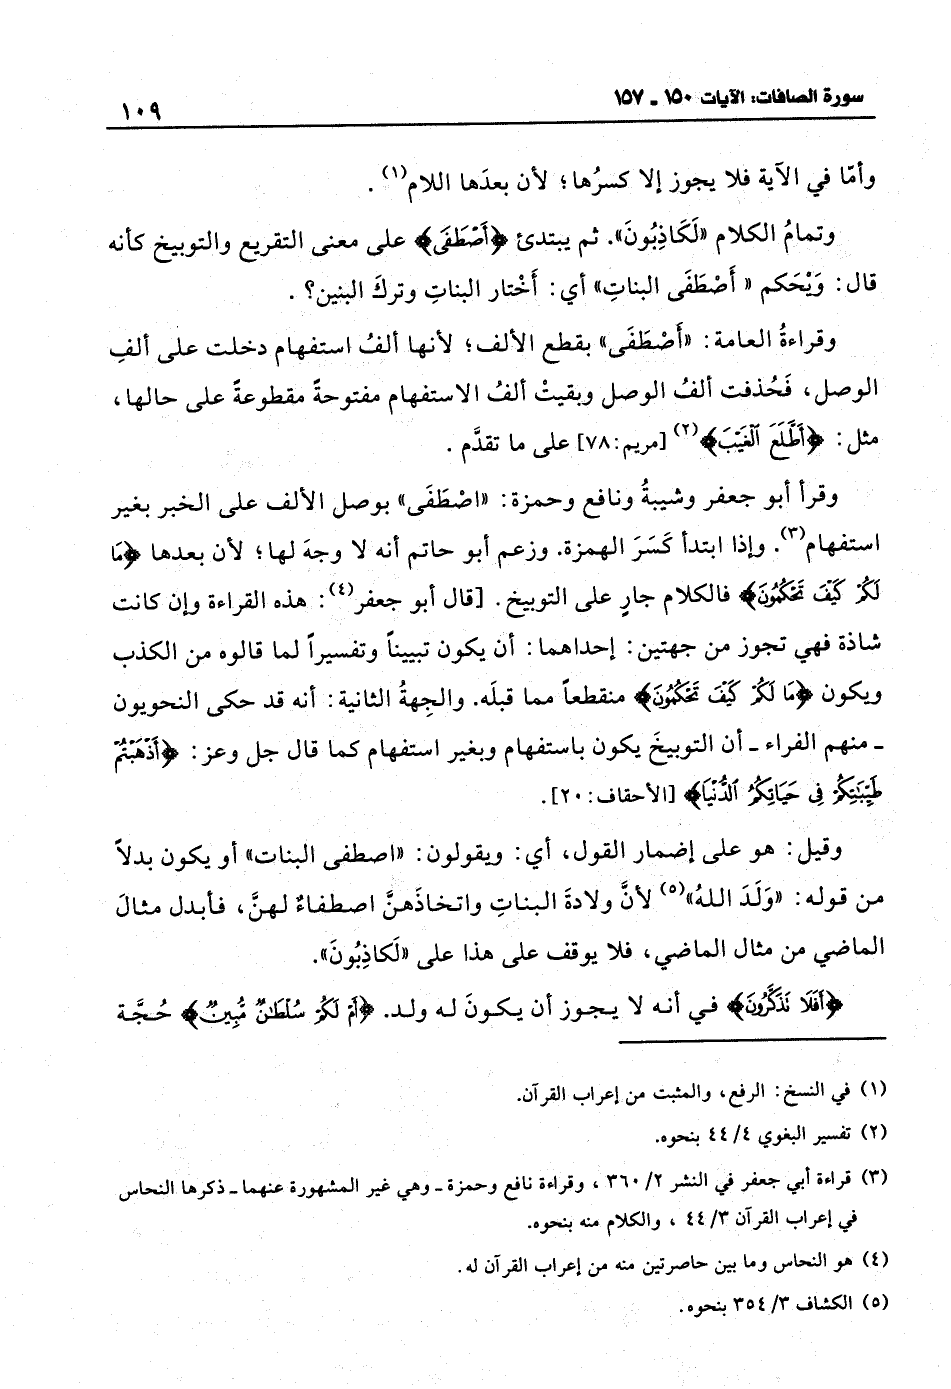 سورة الصافات: الآيات ١٥٠ ـ ١٥٧
١٠٩
وأمّا في الآية فلا يجوز إلا كسرُها؛ لأن بعدَها اللام(١) .
وتمامُ الكلام «لَكَاذِبُونَ». ثم يبتدئ ﴿أَصْطَفَى﴾ على معنى التقريع والتوبيخ كأنه
قال: وَيْحَكم « أَصْطَفَى البناتِ» أي: أَخْتار البناتِ وتركَ البنين؟ .
وقراءةُ العامة: «أَصْطَفَى» بقطع الألف؛ لأنها ألفُ استفهام دخلت على ألفِ
الوصل، فَحُذفت ألفُ الوصل وبقيتْ ألفُ الاستفهام مفتوحةً مقطوعةً على حالها،
مثل: ﴿أَطَّلَعَ ٱلْغَيْبَ﴾(٢) [مريم:٧٨] على ما تقدَّم .
وقرأ أبو جعفر وشيبةُ ونافع وحمزة: «اصْطَفَى» بوصل الألف على الخبر بغير
استفهام(٣). وإذا ابتدأ كَسَرَ الهمزة. وزعم أبو حاتم أنه لا وجهَ لها؛ لأن بعدها ﴿مَا
لَكُمْ كَيْفَ تَحْكُمُونَ﴾ فالكلام جارٍ على التوبيخ. [قال أبو جعفر(٤): هذه القراءة وإن كانت
شاذة فهي تجوز من جهتين: إحداهما: أن يكون تبييناً وتفسيراً لما قالوه من الكذب
ويكون ﴿مَا لَكُمْ كَيْفَ تَحْكُمُونَ﴾ منقطعاً مما قبلَه. والجِهةُ الثانية: أنه قد حكى النحويون
ـ منهم الفراء ـ أن التوبيخَ يكون باستفهام وبغير استفهام كما قال جل وعز: ﴿أَذْهَبْتُمْ
طَيِّبَٰتِكُمْ فِى حَيَاتِكُمُ ٱلدُّنْيَا﴾ [الأحقاف:٢٠].
وقيل: هو على إضمار القول، أي: ويقولون: «اصطفى البنات» أو يكون بدلاً
من قوله: «وَلَدَ اللهُ»(٥) لأنَّ ولادةَ البناتِ واتخاذَهنَّ اصطفاءٌ لهنَّ، فأبدل مثالَ
الماضي من مثال الماضي، فلا يوقف على هذا على «لَكاذِبُونَ».
﴿أَفَلَا تَذَكَّرُونَ﴾ في أنه لا يجوز أن يكونَ له ولد. ﴿أَمْ لَكُمْ سُلْطَانٌ مُّبِينٌ﴾ حُجَّة
(١) في النسخ: الرفع، والمثبت من إعراب القرآن.
(٢) تفسير البغوي ٤/ ٤٤ بنحوه.
(٣) قراءة أبي جعفر في النشر ٢/ ٣٦٠ ، وقراءة نافع وحمزة ـ وهي غير المشهورة عنهما ـ ذكرها النحاس
في إعراب القرآن ٣/ ٤٤ ، والكلام منه بنحوه.
(٤) هو النحاس وما بين حاصرتين منه من إعراب القرآن له.
(٥) الكشاف ٣/ ٣٥٤ بنحوه.